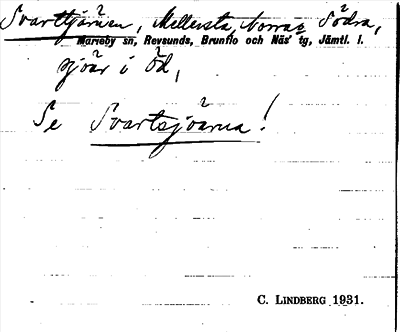 Svarttjärnen, Mellersta, Norra o Södra,
Marieby sn, Revsunds, Brunflo och Näs' tg, Jämtl. l.
sjöar i Öd,
Se Svartsjöarna!
C. LINDBERG 1931.